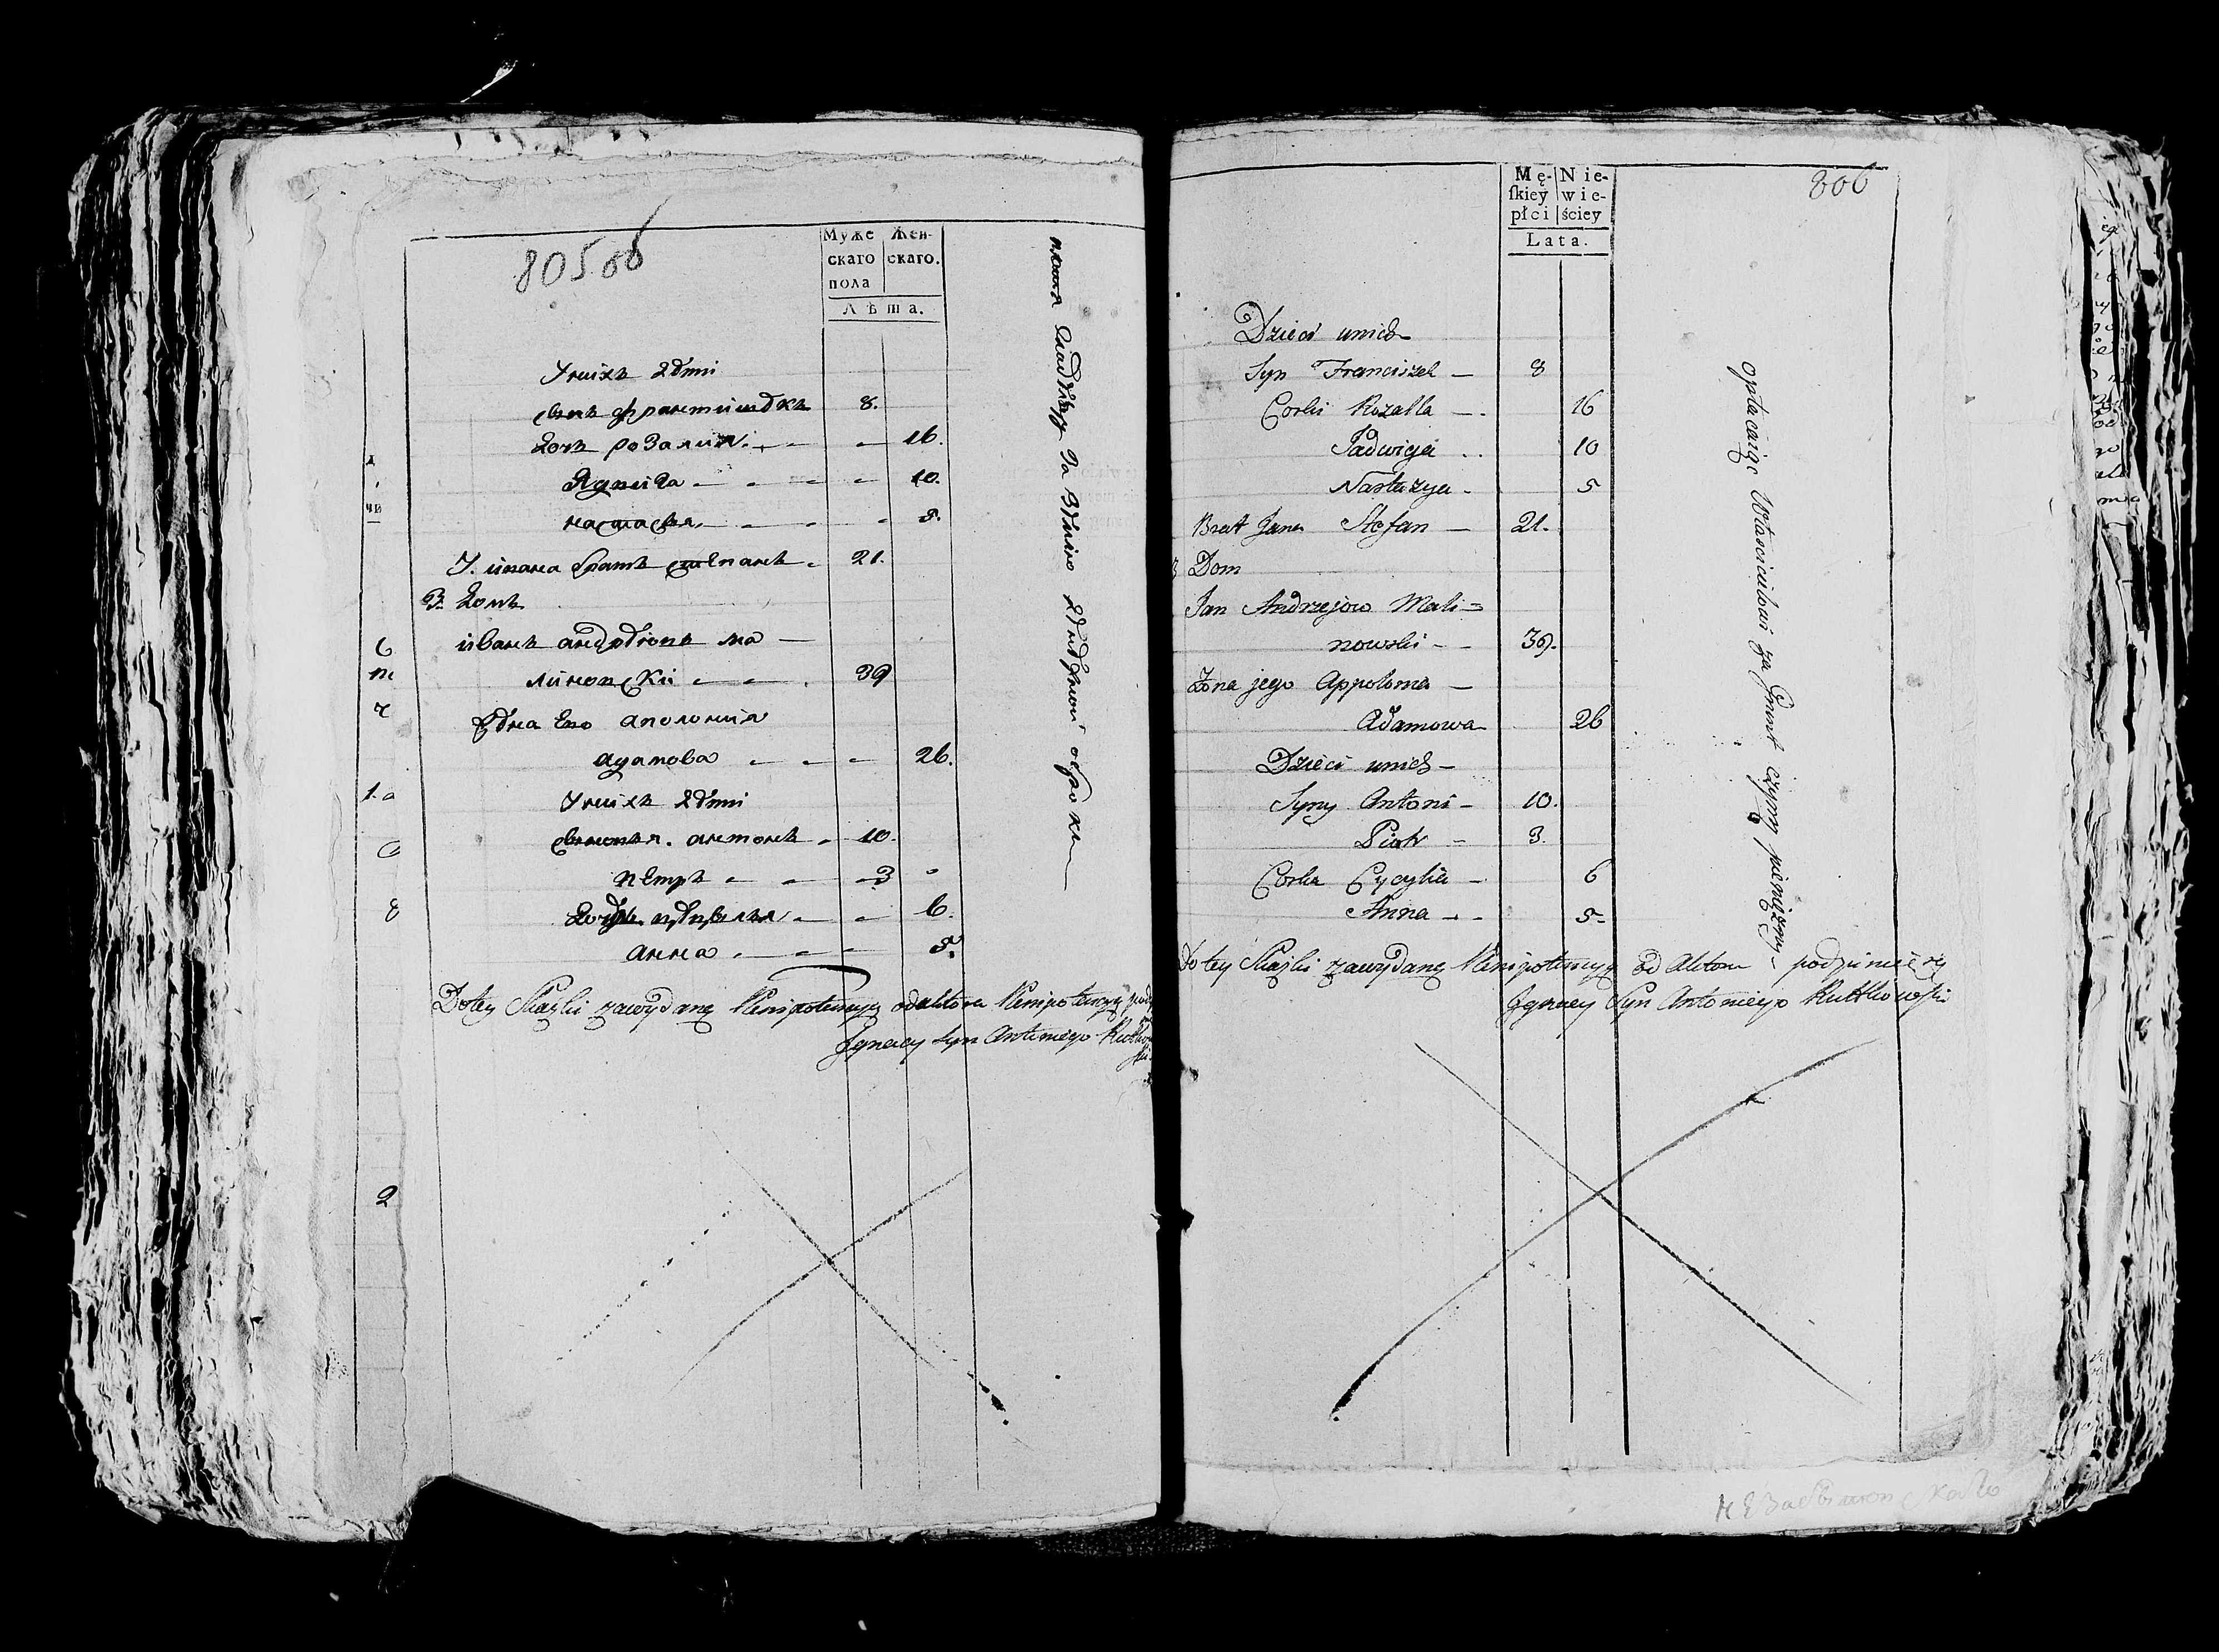 80506
Муже Жен-
скаго скаго.
пола
Лѣта.
У нихъ дѣти
сынъ францишекъ 8.
дочь розалия 16.
Ядвига 10.
настасья 5.
У. ивана братъ степанъ 21.
3. домъ
иванъ андреѣовъ ма
линовский 39
жена Его аполония
адамова 26.
У нихъ дѣти
сыновья. антонъ 10.
петръ 3
дочь цецылия 6.
анна 5.
Do tey Skazki zawydaną Plenipotencyą od aktora
Jgnacy Syn Antoniego
806
Mę- Nie-
ſkiey wie-
płci ściey
Lata.
Dzieci unich
Syn Franciszek — 8
Corki Rozalla — 16
Jadwiga 10
Nastazya - 5
Brat Jana Stefan — 21.
3 Dom
Jan Andrzejow Mali-
nowski - - 39.
Żona jego Appolonia —
Adamowa 26
Dzieci unich —
Syny Antoni - 10.
Piotr - 3.
Corka Cycylia - 6
Anna - - 5-
opłacaiąc Właścicielowi za Grunt czynsz pieniężny
Do tey Skazki zawydaną Plenipotencyą od Aktora - podpisuię się
Jgnacy Syn Antoniego Rutkowski